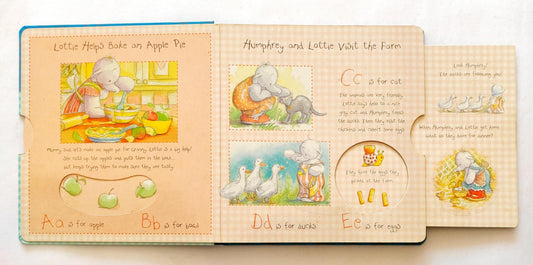 Lottie Helps Bake an Apple Pie
Mummy said let's make an apple pie for Granny. Lottie is a big help!
She rolled up the apples and puts them in the bowl,
but keeps trying them to make sure they are tasty.
Aa is for apple
Bb is for bowl
Humphrey and Lottie Visit the Farm
Cc is for cat
The animals are very friendly.
Lottie says hello to a soft
grey cat and Humphrey feeds
the ducks. Then they visit the
chickens and collect some eggs.
They found the eggs they
picked at the farm.
Dd is for ducks
Ee is for eggs
Look Humphrey!
The ducks are following you!
When Humphrey and Lottie get home
what do they have for dinner?